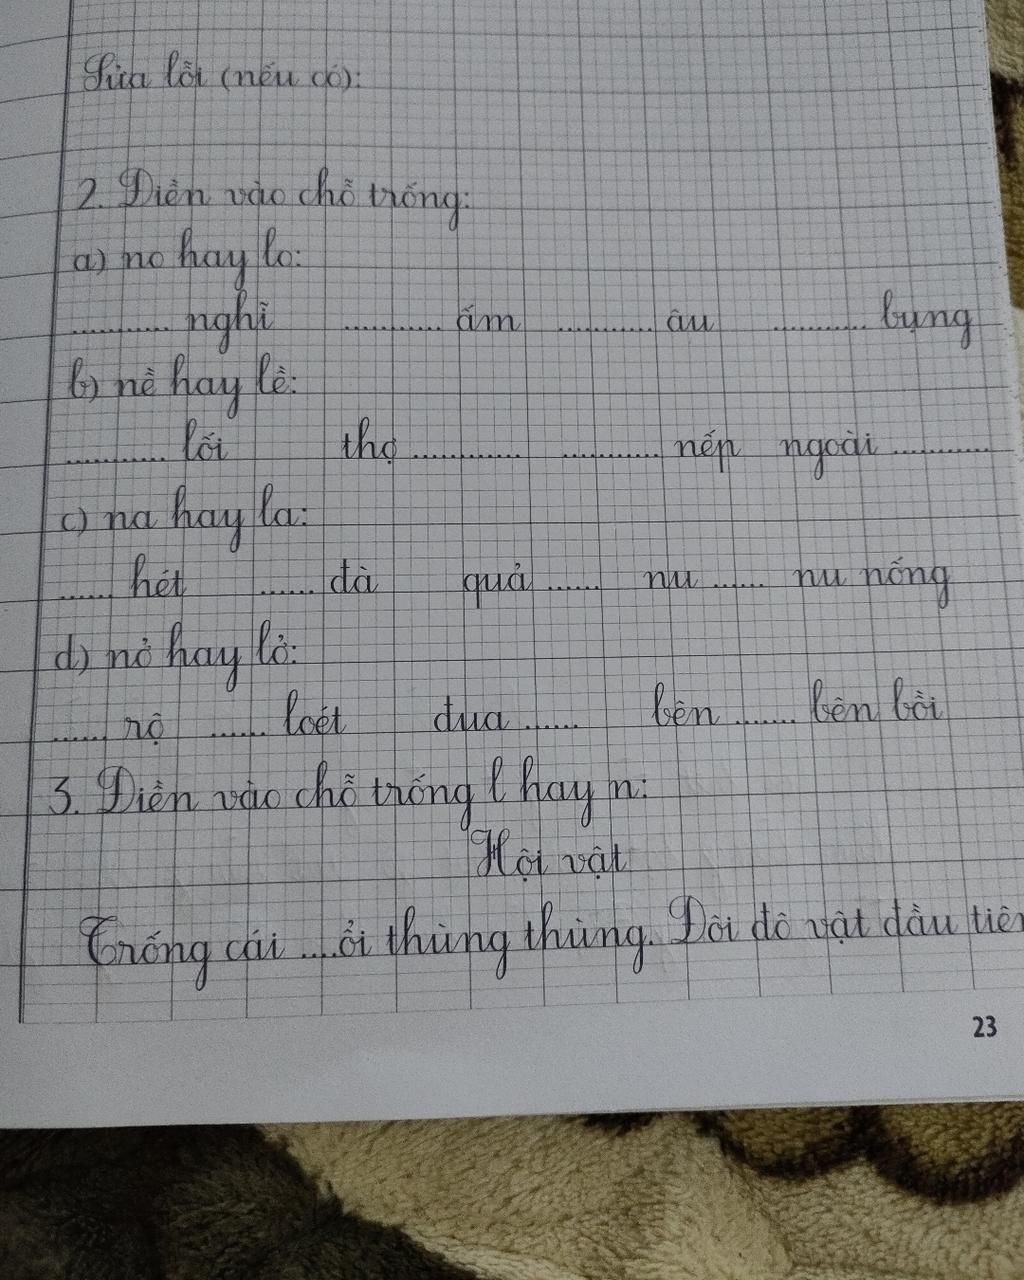 Sửa lỗi (nếu có):
2. Điền vào chỗ trống:
a) no hay lo:
............ nghĩ ............ ấm ............ âu ............ bụng
b) nề hay lề:
............ lối thợ ............ ............ nếp ngoài ............
c) na hay la:
...... hét ...... đà quả ...... nu ...... nu nống
d) nở hay lở:
...... rộ ...... loét đua ...... bên ...... bên bồi
3. Điền vào chỗ trống l hay n:
Hội vật
Trống cái ....ổi thùng thùng. Đôi đô vật đầu tiên
23